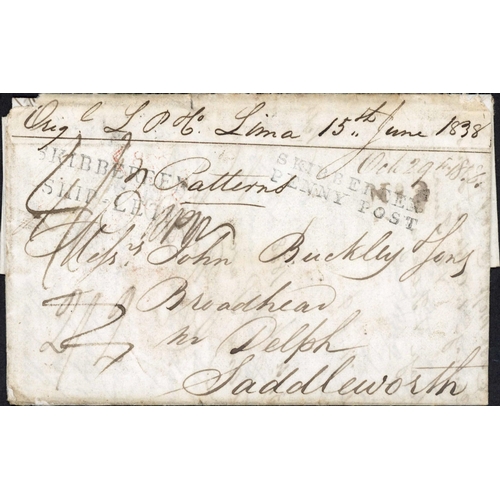 Orig.l L. P. Ho. Lima 15.th June 1838
Oct 29th 1838
SKIBBEREEN
SHIP LETTER
SKIBBEREEN
PENNY POST
Patterns
Mess.rs John Buckley & Sons
Broadhead
nr Delph
Saddleworth